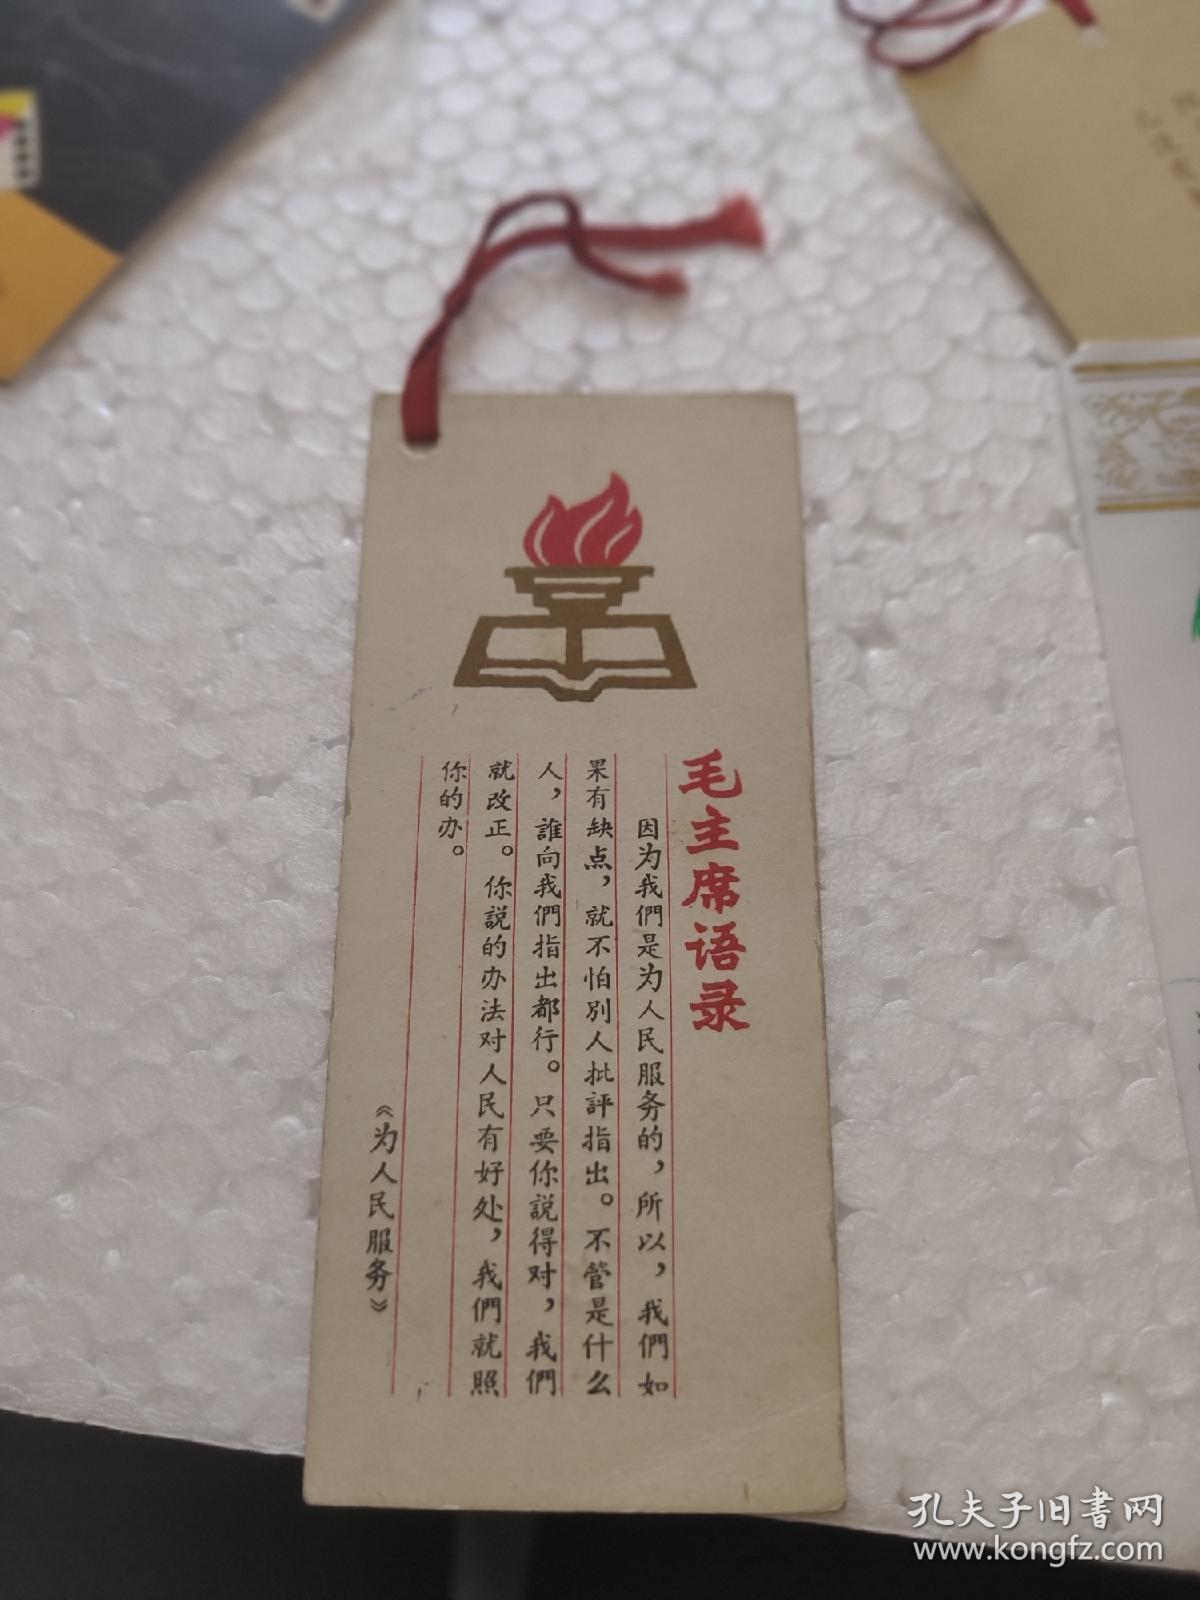 毛主席语录
因为我們是为人民服务的，所以，我們如
果有缺点，就不怕別人批評指出。不管是什么
人，誰向我們指出都行。只要你説得对，我們
就改正。你説的办法对人民有好处，我們就照
你的办。
《为人民服务》
孔夫子旧书网
www.kongfz.com